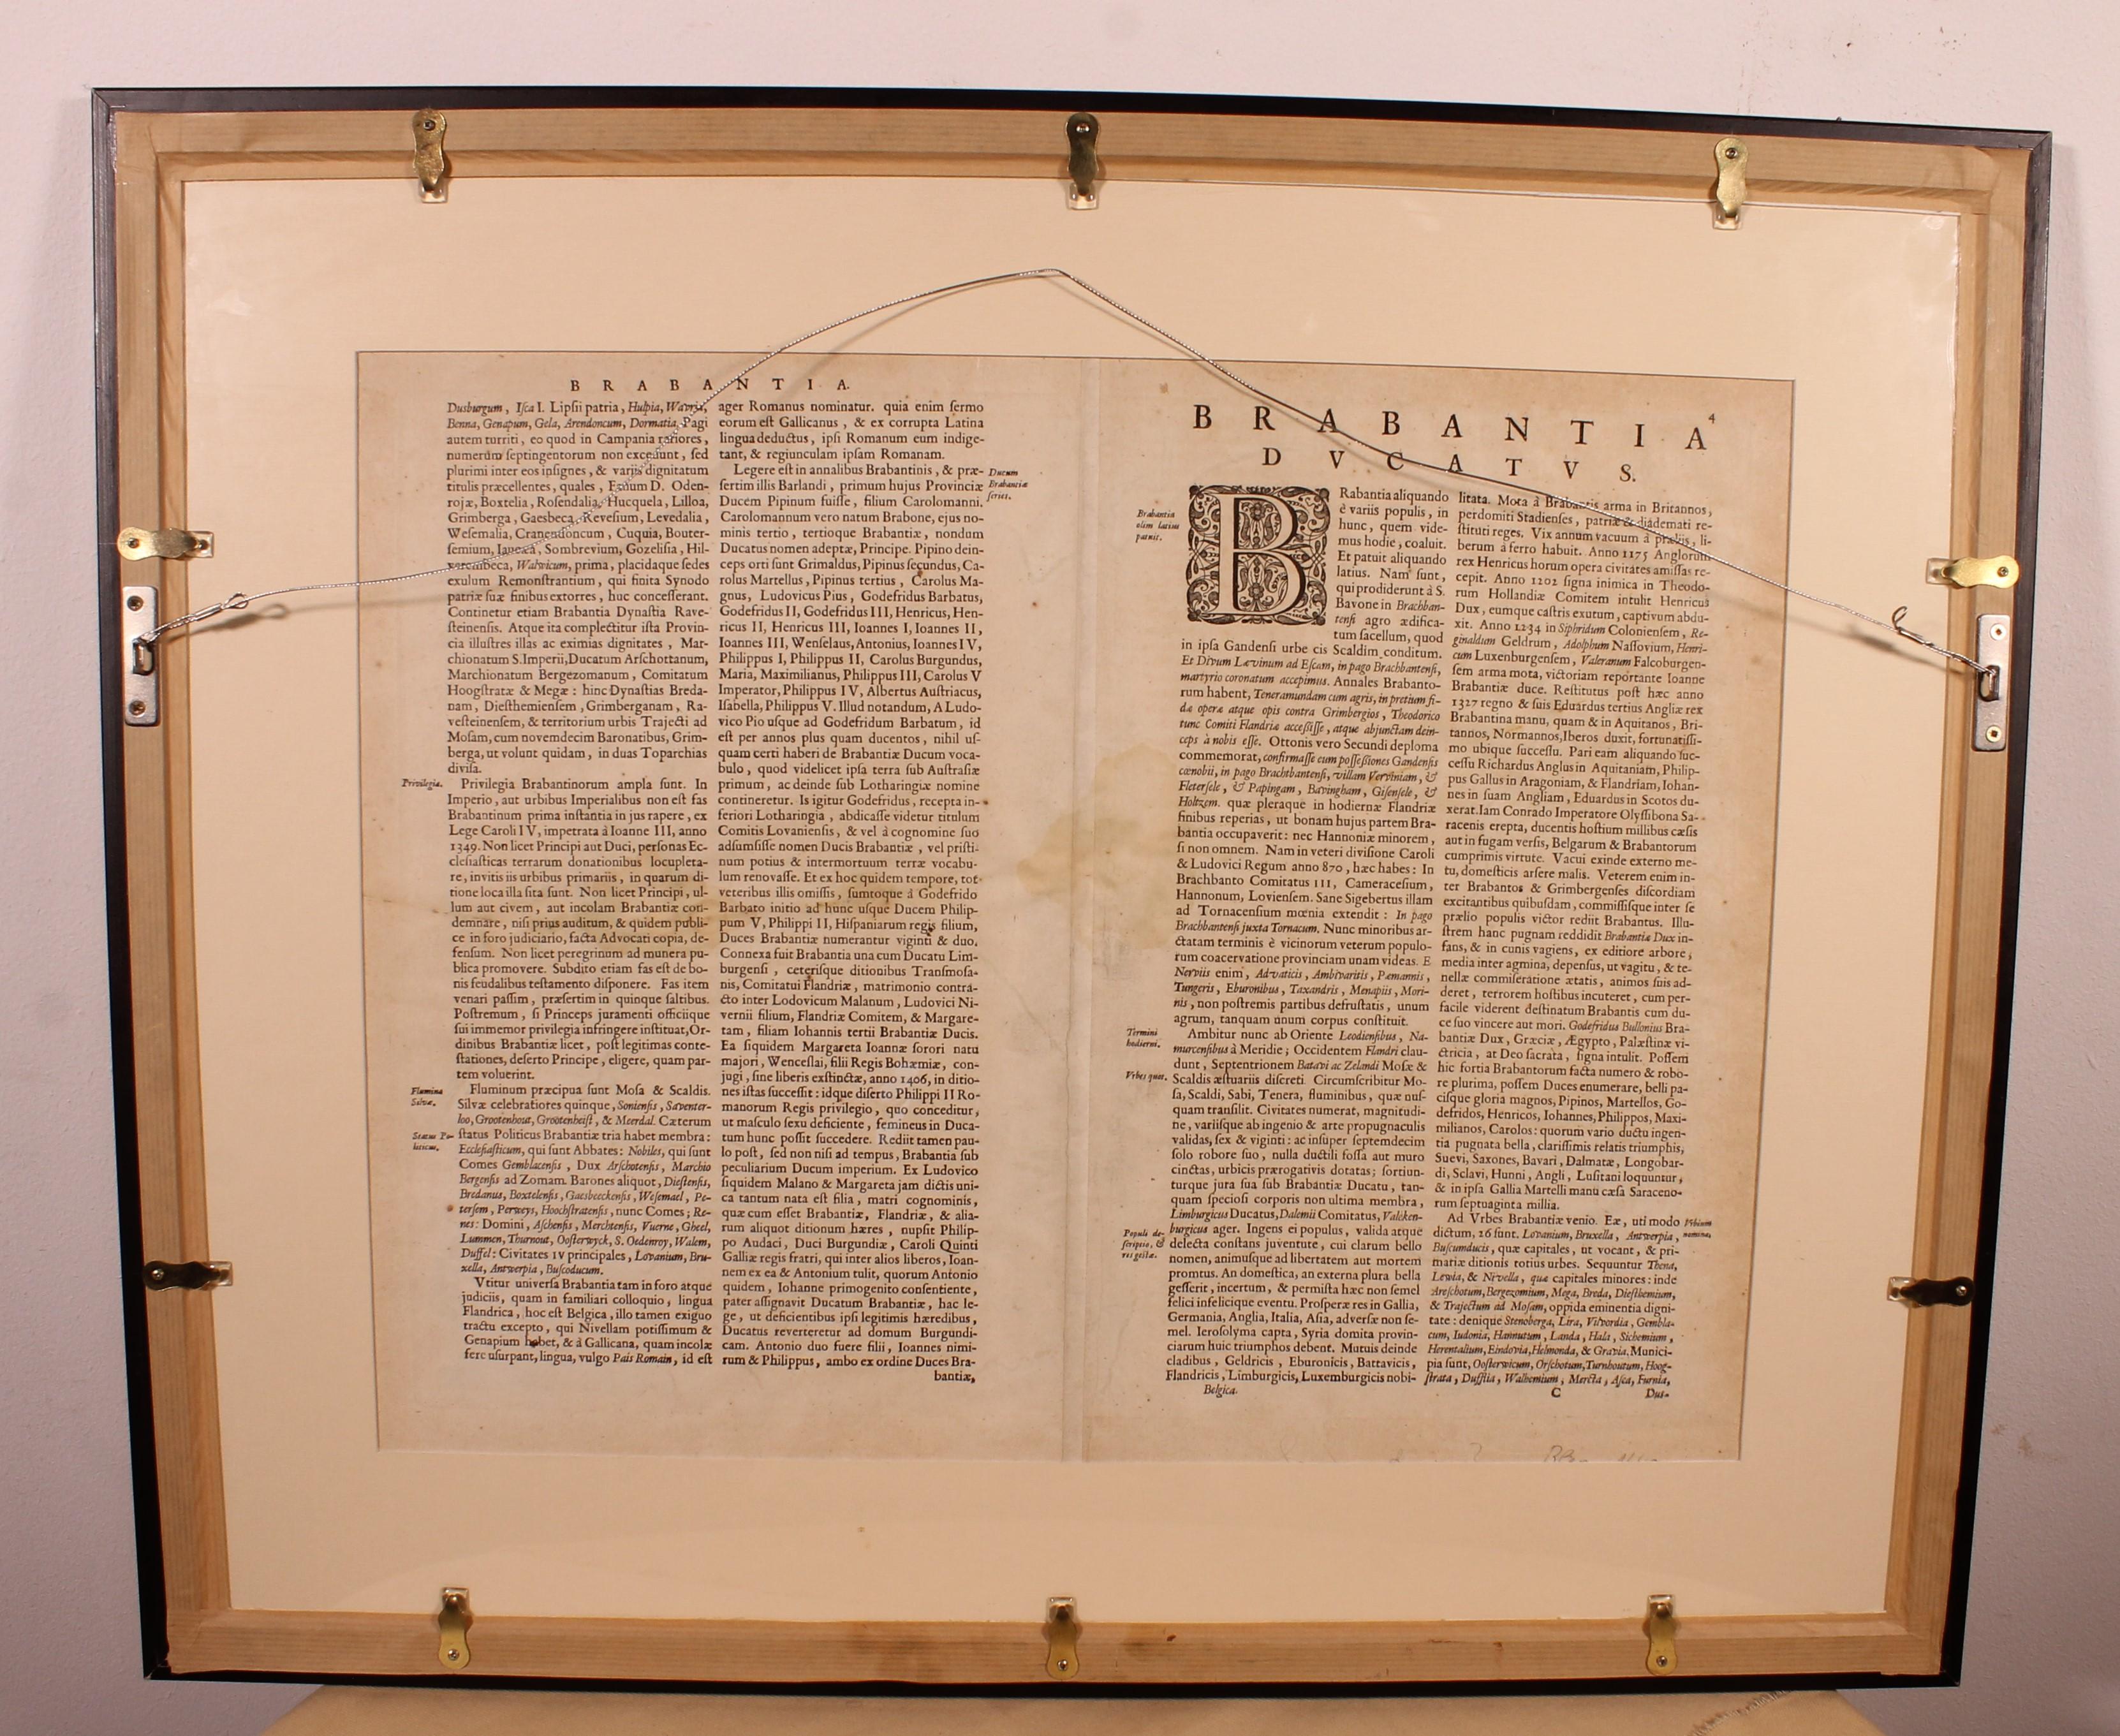 BRABANTIA.
Dusburgum, Isca I. Lipsii patria, Hulpia, Wavria,
Benna, Genapum, Gela, Arendoncum, Dormatia. Pagi
autem turriti, eo quod in Campania rariores,
numerum septingentorum non excedunt, sed
plurimi inter eos insignes, & variis dignitatum
titulis præcellentes, quales, Fanum D. Oden-
rojæ, Boxtelia, Rosendalia, Hucquela, Lilloa,
Grimberga, Gaesbeca, Revesium, Levedalia,
Wesemalia, Cranendoncum, Cuquia, Bouter-
semium, Jauaca, Sombrevium, Gozelisia, Hil-
varembeca, Walwicum, prima, placidaque sedes
exulum Remonstrantium, qui finita Synodo
patriæ suæ finibus extorres, huc concesserant.
Continetur etiam Brabantia Dynastia Rave-
steinensis. Atque ita complectitur ista Provin-
cia illustres illas ac eximias dignitates, Mar-
chionatum S. Imperii, Ducatum Arschottanum,
Marchionatum Bergezomanum, Comitatum
Hoogstratæ & Megæ: hinc Dynastias Breda-
nam, Diesthemiensem, Grimberganam, Ra-
vesteinensem, & territorium urbis Trajecti ad
Mosam, cum novemdecim Baronatibus, Grim-
berga, ut volunt quidam, in duas Toparchias
divisa.
Privilegia.
Privilegia Brabantinorum ampla sunt. In
Imperio, aut urbibus Imperialibus non est fas
Brabantinum prima instantia in jus rapere, ex
Lege Caroli IV, impetrata à Ioanne III, anno
1349. Non licet Principi aut Duci, personas Ec-
clesiasticas terrarum donationibus locupleta-
re, invitis iis urbibus primariis, in quarum di-
tione loca illa sita sunt. Non licet Principi, ul-
lum aut civem, aut incolam Brabantiæ con-
demnare, nisi prius auditum, & quidem publi-
ce in foro judiciario, facta Advocati copia, de-
fensum. Non licet peregrinum ad munera pu-
blica promovere. Subdito etiam fas est de bo-
nis feudalibus testamento disponere. Fas item
venari passim, præsertim in quinque saltibus.
Postremum, si Princeps juramenti officiique
sui immemor privilegia infringere instituat, Or-
dinibus Brabantiæ licet, post legitimas conte-
stationes, deserto Principe, eligere, quam par-
tem voluerint.
Flumina
Silvæ.
Fluminum præcipua sunt Mosa & Scaldis.
Silvæ celebratiores quinque, Soniensis, Saventer-
loo, Grootenhout, Grootenheist, & Meerdal. Cæterum
Status Po-
liticus.
status Politicus Brabantiæ tria habet membra:
Ecclesiasticum, qui sunt Abbates: Nobiles, qui sunt
Comes Gemblacensis, Dux Arschotensis, Marchio
Bergensis ad Zomam. Barones aliquot, Diestensis,
Bredanus, Boxtelensis, Gaesbeeckensis, Wesemael, Pe-
tersem, Perweys, Hoochstratensis, nunc Comes; Re-
nes: Domini, Aschensis, Merchtensis, Vuerne, Gheel,
Lummen, Thurnout, Oosterwyck, S. Oedenroy, Walem,
Duffel: Civitates IV principales, Lovanium, Bru-
xella, Antwerpia, Buscoducum.
Vtitur universa Brabantia tam in foro atque
judiciis, quam in familiari colloquio, lingua
Flandrica, hoc est Belgica, illo tamen exiguo
tractu excepto, qui Nivellam potissimum &
Genapium habet, & à Gallicana, quam incolæ
fere usurpant, lingua, vulgo Pais Romain, id est
ager Romanus nominatur. quia enim sermo
eorum est Gallicanus, & ex corrupta Latina
lingua deductus, ipsi Romanum eum indige-
tant, & regiunculam ipsam Romanam.
Ducum
Brabantiæ
series.
Legere est in annalibus Brabantinis, & præ-
sertim illis Barlandi, primum hujus Provinciæ
Ducem Pipinum fuisse, filium Carolomanni.
Carolomannum vero natum Brabone, ejus no-
minis tertio, tertioque Brabantiæ, nondum
Ducatus nomen adeptæ, Principe. Pipino dein-
ceps orti sunt Grimaldus, Pipinus secundus, Ca-
rolus Martellus, Pipinus tertius, Carolus Ma-
gnus, Ludovicus Pius, Godefridus Barbatus,
Godefridus II, Godefridus III, Henricus, Hen-
ricus II, Henricus III, Ioannes I, Ioannes II,
Ioannes III, Wenselaus, Antonius, Ioannes IV,
Philippus I, Philippus II, Carolus Burgundus,
Maria, Maximilianus, Philippus III, Carolus V
Imperator, Philippus IV, Albertus Austriacus,
Isabella, Philippus V. Illud notandum, A Ludo-
vico Pio usque ad Godefridum Barbatum, id
est per annos plus quam ducentos, nihil us-
quam certi haberi de Brabantiæ Ducum voca-
bulo, quod videlicet ipsa terra sub Austrasiæ
primum, ac deinde sub Lotharingiæ nomine
contineretur. Is igitur Godefridus, recepta in-
feriori Lotharingia, abdicasse videtur titulum
Comitis Lovaniensis, & vel à cognomine suo
adsumsisse nomen Ducis Brabantiæ, vel pristi-
num potius & intermortuum terræ vocabu-
lum renovasse. Et ex hoc quidem tempore, tot
veteribus illis omissis, sumtoque à Godefrido
Barbato initio ad hunc usque Ducem Philip-
pum V, Philippi II, Hispaniarum regis filium,
Duces Brabantiæ numerantur viginti & duo.
Connexa fuit Brabantia una cum Ducatu Lim-
burgensi, ceterisque ditionibus Transmosa-
nis, Comitatui Flandriæ, matrimonio contra-
cto inter Lodovicum Malanum, Ludovici Ni-
vernii filium, Flandriæ Comitem, & Margare-
tam, filiam Iohannis tertii Brabantiæ Ducis.
Ea siquidem Margareta Ioannæ sorori natu
majori, Wenceslai, filii Regis Bohæmiæ, con-
jugi, sine liberis exstinctæ, anno 1406, in ditio-
nes istas successit: idque diserto Philippi II Ro-
manorum Regis privilegio, quo conceditur,
ut masculo sexu deficiente, femineus in Duca-
tum hunc possit succedere. Rediit tamen pau-
lo post, sed non nisi ad tempus, Brabantia sub
peculiarium Ducum imperium. Ex Ludovico
siquidem Malano & Margareta jam dictis uni-
ca tantum nata est filia, matri cognominis,
quæ cum esset Brabantiæ, Flandriæ, & alia-
rum aliquot ditionum hæres, nupsit Philip-
po Audaci, Duci Burgundiæ, Caroli Quinti
Galliæ regis fratri, qui inter alios liberos, Ioan-
nem ex ea & Antonium tulit, quorum Antonio
quidem, Iohanne primogenito consentiente,
pater assignavit Ducatum Brabantiæ, hac le-
ge, ut deficientibus ipsi legitimis hæredibus,
Ducatus reverteretur ad domum Burgundi-
cam. Antonio duo fuere filii, Ioannes nimi-
rum & Philippus, ambo ex ordine Duces Bra-
bantiæ,
4
BRABANTIA
DVCATVS.
Brabantia
olim latius
patuit.
BRabantia aliquando
è variis populis, in
hunc, quem vide-
mus hodie, coaluit.
Et patuit aliquando
latius. Nam sunt,
qui prodiderunt à S.
Bavone in Brachban-
tensi agro ædifica-
tum sacellum, quod
in ipsa Gandensi urbe cis Scaldim conditum.
Et Divum Lævinum ad Escam, in pago Brachbantensi,
martyrio coronatum accepimus. Annales Brabanto-
rum habent, Teneramundam cum agris, in pretium fi-
dæ operæ atque opis contra Grimbergios, Theodorico
tunc Comiti Flandriæ accessisse, atque abjunctam dein-
ceps à nobis esse. Ottonis vero Secundi deploma
commemorat, confirmasse eum possessiones Gandensis
cœnobii, in pago Brachtbantensi, villam Vervinium, &
Fletersele, & Papingam, Bavingham, Gisensele, &
Holtzem. quæ pleraque in hodiernæ Flandriæ
finibus reperias, ut bonam hujus partem Bra-
bantia occupaverit: nec Hannoniæ minorem,
si non omnem. Nam in veteri divisione Caroli
& Ludovici Regum anno 870, hæc habes: In
Brachbanto Comitatus III, Cameracesium,
Hannonum, Loviensem. Sane Sigebertus illam
ad Tornacensium mœnia extendit: In pago
Brachbantensi juxta Tornacum. Nunc minoribus ar-
ctatam terminis è vicinorum veterum populo-
rum coacervatione provinciam unam videas. E
Nerviis enim, Advaticis, Ambivaritis, Pæmannis,
Tungeris, Eburonibus, Taxandris, Menapiis, Mori-
nis, non postremis partibus defrustatis, unum
agrum, tanquam unum corpus constituit.
Termini
hodierni.
Ambitur nunc ab Oriente Leodiensibus, Na-
murcensibus à Meridie; Occidentem Flandri clau-
dunt, Septentrionem Batavi ac Zelandi Mosæ &
Vrbes quot.
Scaldis æstuariis discreti. Circumscribitur Mo-
sa, Scaldi, Sabi, Tenera, fluminibus, quæ nus-
quam transilit. Civitates numerat, magnitudi-
ne, variisque ab ingenio & arte propugnaculis
validas, sex & viginti: ac insuper septemdecim
solo robore suo, nulla ductili fossa aut muro
cinctas, urbicis prærogativis dotatas; sortiun-
turque jura sua sub Brabantiæ Ducatu, tan-
quam speciosi corporis non ultima membra,
Limburgicus Ducatus, Dalemii Comitatus, Valcken-
Populi de-
scriptio, &
res gestæ.
burgicus ager. Ingens ei populus, valida atque
delecta constans juventute, cui clarum bello
nomen, animusque ad libertatem aut mortem
promtus. An domestica, an externa plura bella
gesserit, incertum, & permista hæc non semel
felici infelicique eventu. Prosperæ res in Gallia,
Germania, Anglia, Italia, Asia, adversæ non se-
mel. Ierosolyma capta, Syria domita provin-
ciarum huic triumphos debent. Mutuis deinde
cladibus, Geldricis, Eburonicis, Battavicis,
Flandricis, Limburgicis, Luxemburgicis nobi-
Belgica.
litata. Mota à Brabantis arma in Britannos,
perdomiti Stadienses, patriæ & diademati re-
stituti reges. Vix annum vacuum à præliis, li-
berum à ferro habuit. Anno 1175 Anglorum
rex Henricus horum opera civitates amissas re-
cepit. Anno 1202 signa inimica in Theodo-
rum Hollandiæ Comitem intulit Henricus
Dux, eumque castris exutum, captivum abdu-
xit. Anno 1234 in Siphridum Coloniensem, Re-
ginaldum Geldrum, Adolphum Nassovium, Henri-
cum Luxenburgensem, Valeranum Falcoburgen-
sem arma mota, victoriam reportante Ioanne
Brabantiæ duce. Restitutus post hæc anno
1327 regno & suis Eduardus tertius Angliæ rex
Brabantina manu, quam & in Aquitanos, Bri-
tannos, Normannos, Iberos duxit, fortunatissi-
mo ubique successu. Pari eam aliquando suc-
cessu Richardus Anglus in Aquitaniam, Philip-
pus Gallus in Aragoniam, & Flandriam, Iohan-
nes in suam Angliam, Eduardus in Scotos du-
xerat. Iam Conrado Imperatore Olyssibona Sa-
racenis erepta, ducentis hostium millibus cæsis
aut in fugam versis, Belgarum & Brabantorum
cumprimis virtute. Vacui exinde externo me-
tu, domesticis arsere malis. Veterem enim in-
ter Brabantos & Grimbergenses discordiam
excitantibus quibusdam, commissisque inter se
prælio populis victor rediit Brabantus. Illu-
strem hanc pugnam reddidit Brabantiæ Dux in-
fans, & in cunis vagiens, ex editiore arbore,
media inter agmina, depensus, ut vagitu, & te-
nellæ commiseratione ætatis, animos suis ad-
deret, terrorem hostibus incuteret, cum per-
facile viderent destinatum Brabantis cum du-
ce suo vincere aut mori. Godefridus Bullonius Bra-
bantiæ Dux, Græciæ, Ægypto, Palæstinæ vi-
ctricia, at Deo sacrata, signa intulit. Possem
hic fortia Brabantorum facta numero & robo-
re plurima, possem Duces enumerare, belli pa-
cisque gloria magnos, Pipinos, Martellos, Go-
defridos, Henricos, Iohannes, Philippos, Maxi-
milianos, Carolos: quorum vario ductu ingen-
tia pugnata bella, clarissimis relatis triumphis,
Suevi, Saxones, Bavari, Dalmatæ, Longobar-
di, Sclavi, Hunni, Angli, Lusitani loquuntur,
& in ipsa Gallia Martelli manu cæsa Saraceno-
rum septuaginta millia.
Vrbium
nomina,
Ad Vrbes Brabantiæ venio. Eæ, uti modo
dictum, 26 sunt. Lovanium, Bruxella, Antwerpia,
Buscumducis, quæ capitales, ut vocant, & pri-
mariæ ditionis totius urbes. Sequuntur Thena,
Lewia, & Nivella, quæ capitales minores: inde
Areschotum, Bergezomium, Mega, Breda, Diesthemium,
& Trajectum ad Mosam, oppida eminentia digni-
tate: denique Stenoberga, Lira, Vilvordia, Gembla-
cum, Iudonia, Hannutum, Landa, Hala, Sichemium,
Herentalium, Eindovia, Helmonda, & Gravia. Munici-
pia sunt, Oosterwicum, Orschotum, Turnhoutum, Hoog-
strata, Dufflia, Walhemium, Mercta, Asca, Furnia,
C
Dus-